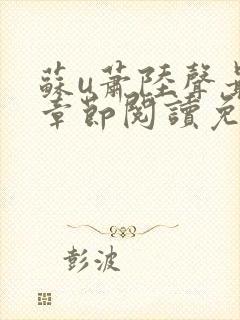 蘇u蕭陸聲
章節閱讀免
彭波